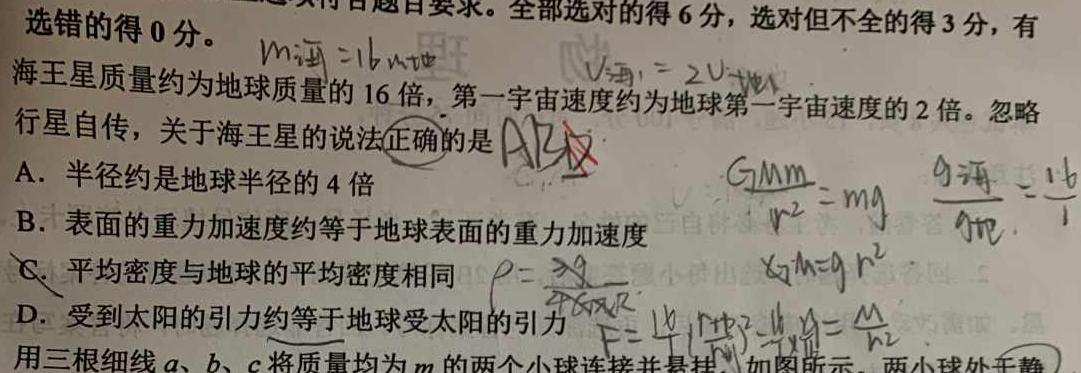 题目要求。全部选对的得 6 分，选对但不全的得 3 分，有
选错的得 0 分。
m海=16m地
v海=2v地
海王星质量约为地球质量的 16 倍，第一宇宙速度约为地球第一宇宙速度的 2 倍。忽略
行星自传，关于海王星的说法正确的是 ABD
A．半径约是地球半径的 4 倍
GMm/r²=mg
g海/g地=16/1
B．表面的重力加速度约等于地球表面的重力加速度
C．平均密度与地球的平均密度相同
ρ=3g/4GπR
GM=gr²
D．受到太阳的引力约等于地球受太阳的引力
用三根细线 a、b、c 将质量均为 m 的两个小球连接并悬挂，如图所示。两小球处于静